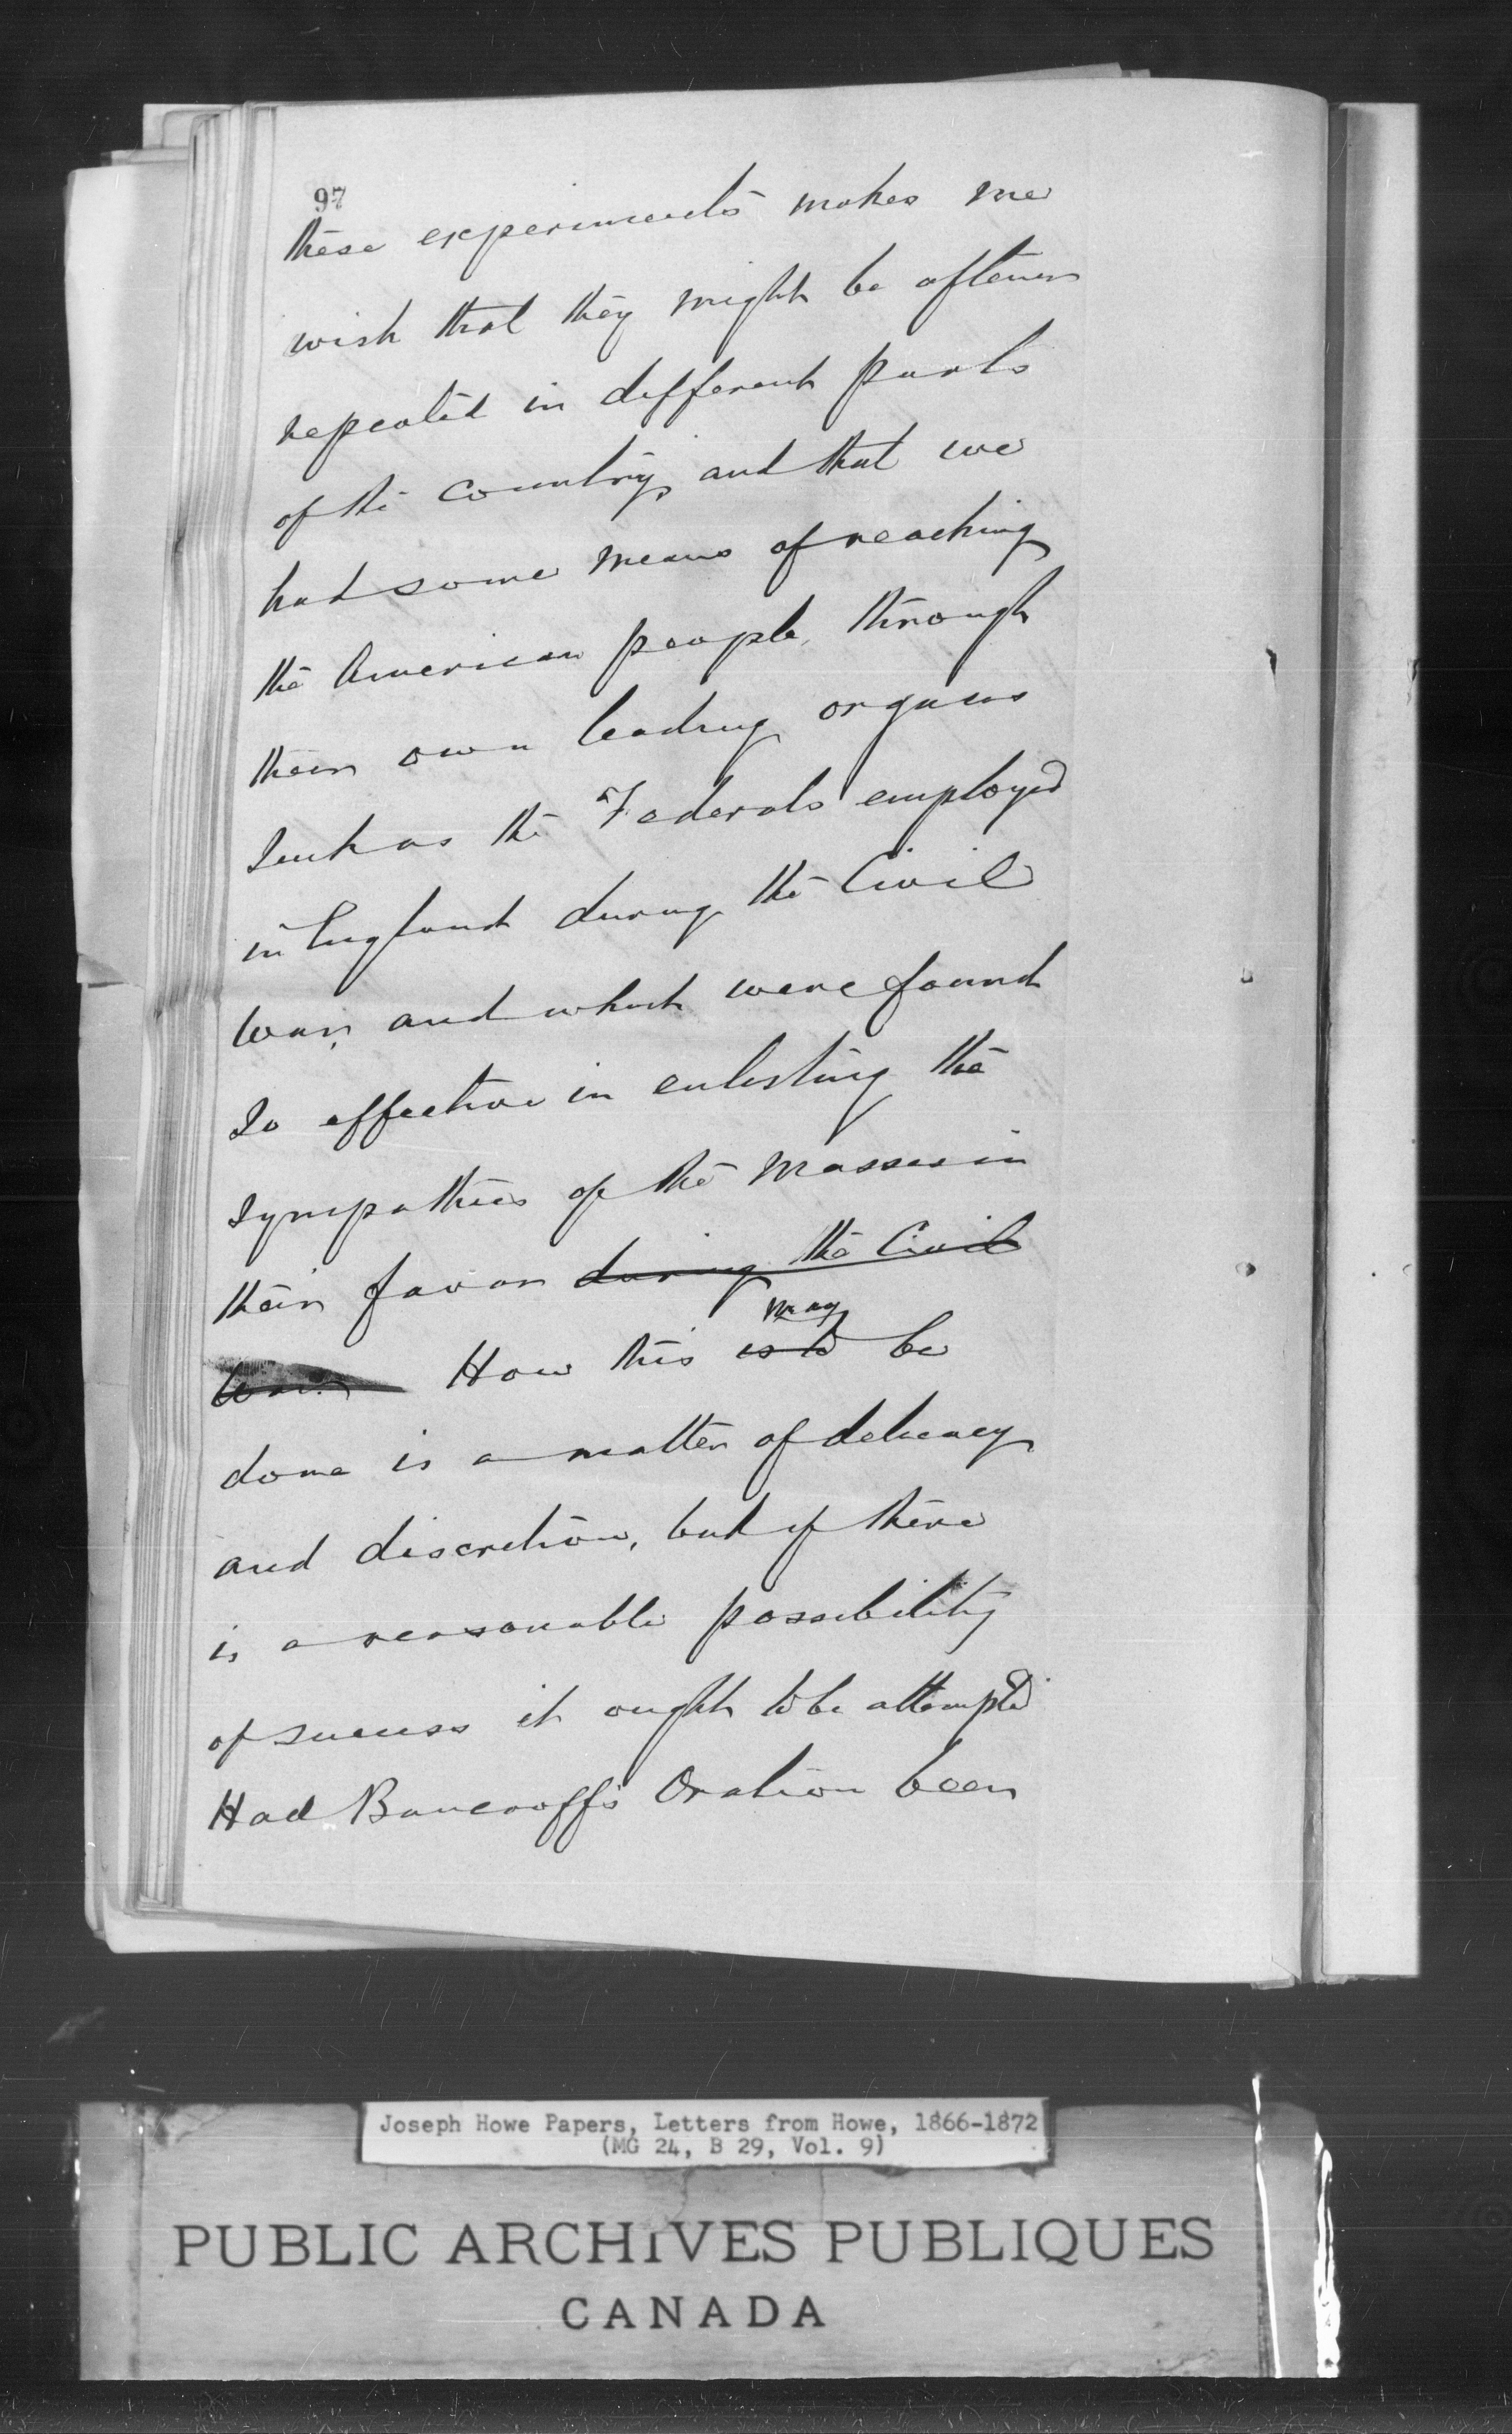 97
these experiments makes me
wish that they might be oftener
repeated in different parts
of the country, and that we
had some means of reaching
the American people, through
their own leading organs
such as the Federals employed
in England during the Civil
War, and which were found
so effective in enlisting the
sympathies of the masses in
their favor during the Civil
War. How this is to may be
done is a matter of delicacy
and discretion, but if there
is a reasonable possibility
of success it ought to be attempted
Had Bancroft's Oration been
Joseph Howe Papers, Letters from Howe, 1866-1872
(MG 24, B 29, Vol. 9)
PUBLIC ARCHIVES PUBLIQUES
CANADA